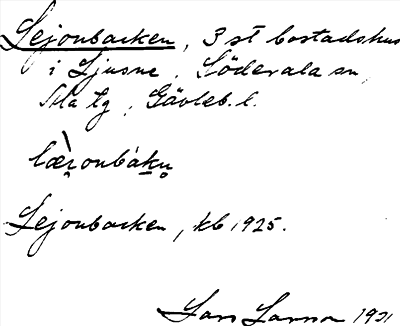 Lejonbacken, 3 st bostadshus
i Ljusne, Söderala sn,
Ala tg, Gävleb. l.
Lejonbacken, kb 1925.
Lars Larsson 1931